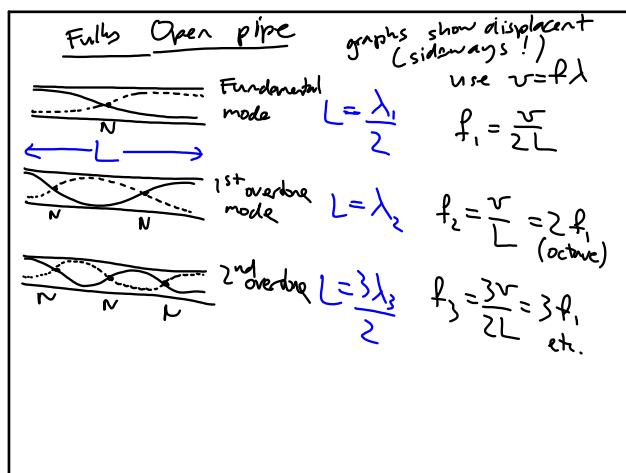 Fully Open pipe
graphs show displacent
(sideways!)
use v=fλ
Fundamental
mode
N
L=λ₁/2
f₁=v/2L
L
1st overtone
mode
N N
L=λ₂
f₂=v/L=2f₁
(octave)
2nd
overtone
N N N
L=3λ₃/2
f₃=3v/2L=3f₁
etc.